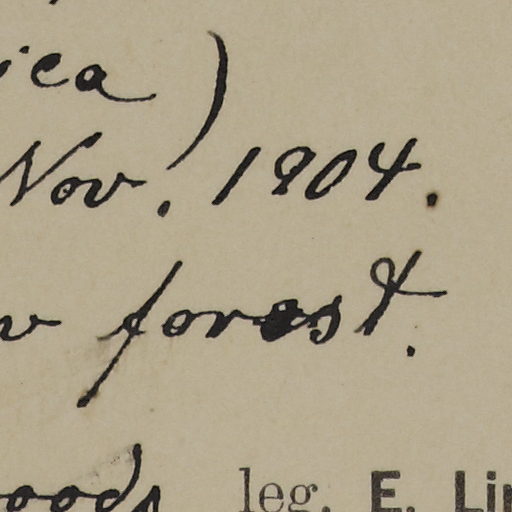 ica)
Nov. 1904.
forest.
oods leg. E. Lin